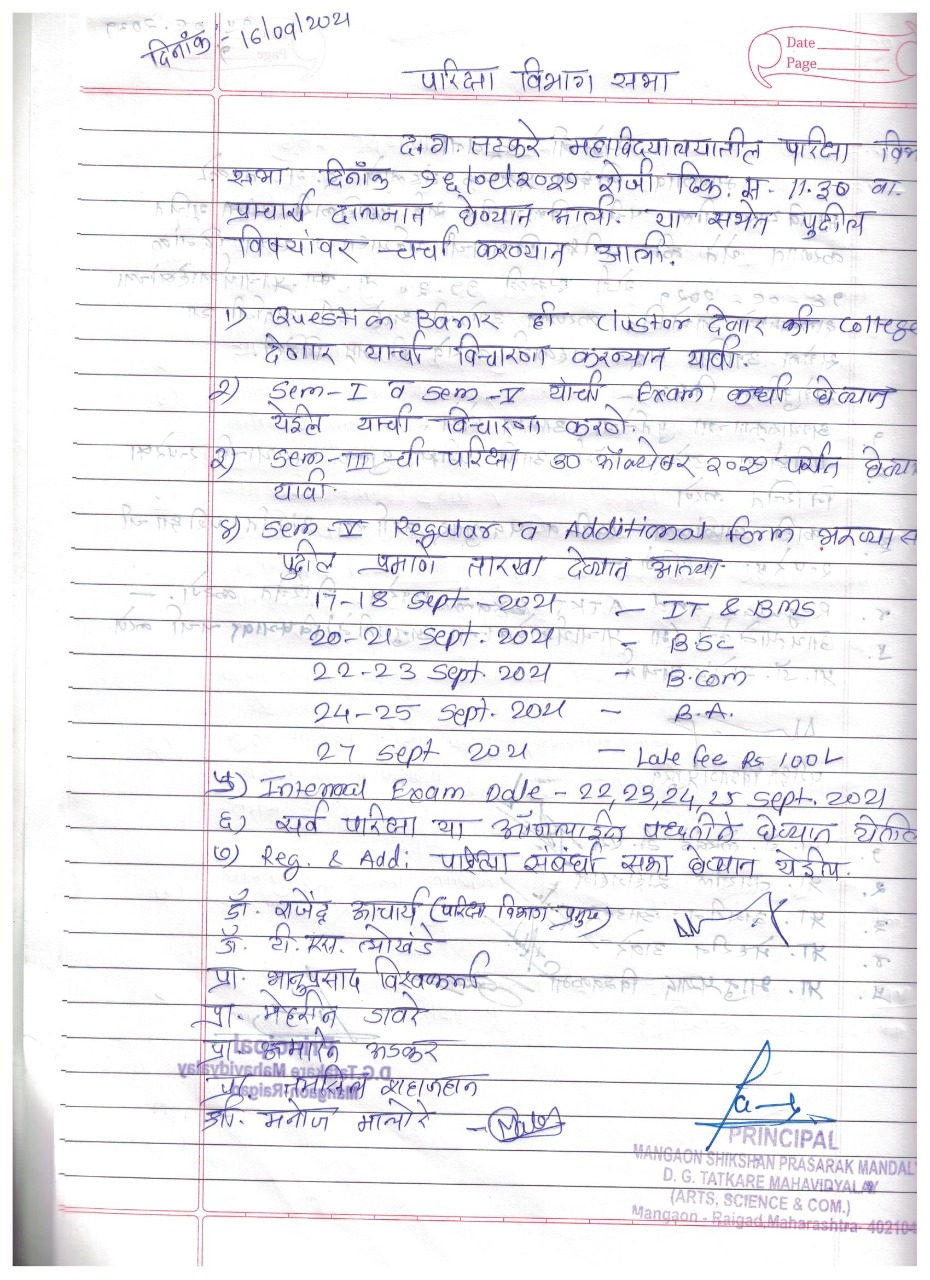 दिनाँक:- 16/09/2021
Date
Page
परिक्षा विभाग सभा
द.ग तटकरे महाविदयालयातील परिक्षा विभ
सभा दिनाँक १६/०९/२०२१ रोजी ठिक. स. 11.30 वा.
प्राचार्य दालनात घेण्यात आली. या सभेत पुढील
विषयांवर चर्चा करण्यात आली.
1) Question Bank ही Clustor देणार की College
देणार याची विचारणा करण्यात यावी.
२) Sem-I व Sem-V याची Exam कधी घेण्यात
येईल याची विचारणा करणे.
३) Sem-III ची परिक्षा 30 ऑक्टोबर २०२१ पर्यंत घेण्या
यावी.
४) Sem-V Regular व Additional form भरण्यास
पुढील प्रमाणे तारखा देण्यात आल्या
17-18 Sept-2021 - IT & BMS
20-21 Sept. 2021 - BSC
22-23 Sept. 2021 - B.Com
24-25 Sept. 2021 - B.A.
27 Sept 2021 - Late fee Rs 100/-
५) Internal Exam Date - 22,23,24,25 Sept. 2021
६) सर्व परिक्षा या ऑनलाईन पध्दतीने घेण्यात येतील
७) Reg. & Addi परिक्षा संबंधी सभा घेण्यात येईल.
डॉ. राजेंद्र आचार्य (परिक्षा विभाग प्रमुख)
डॉ. टी. एस. लोखंडे
प्रा. भानुप्रसाद विश्वकर्मा
प्रा. मेहरीन डावरे
प्रा. अडकर
शहाजहान
मनोज
PRINCIPAL
MANGAON SHIKSHAN PRASARAK MANDAL
D. G. TATKARE MAHAVIDYALAY
(ARTS, SCIENCE & COM.)
Mangaon - Raigad, Maharashtra- 402104